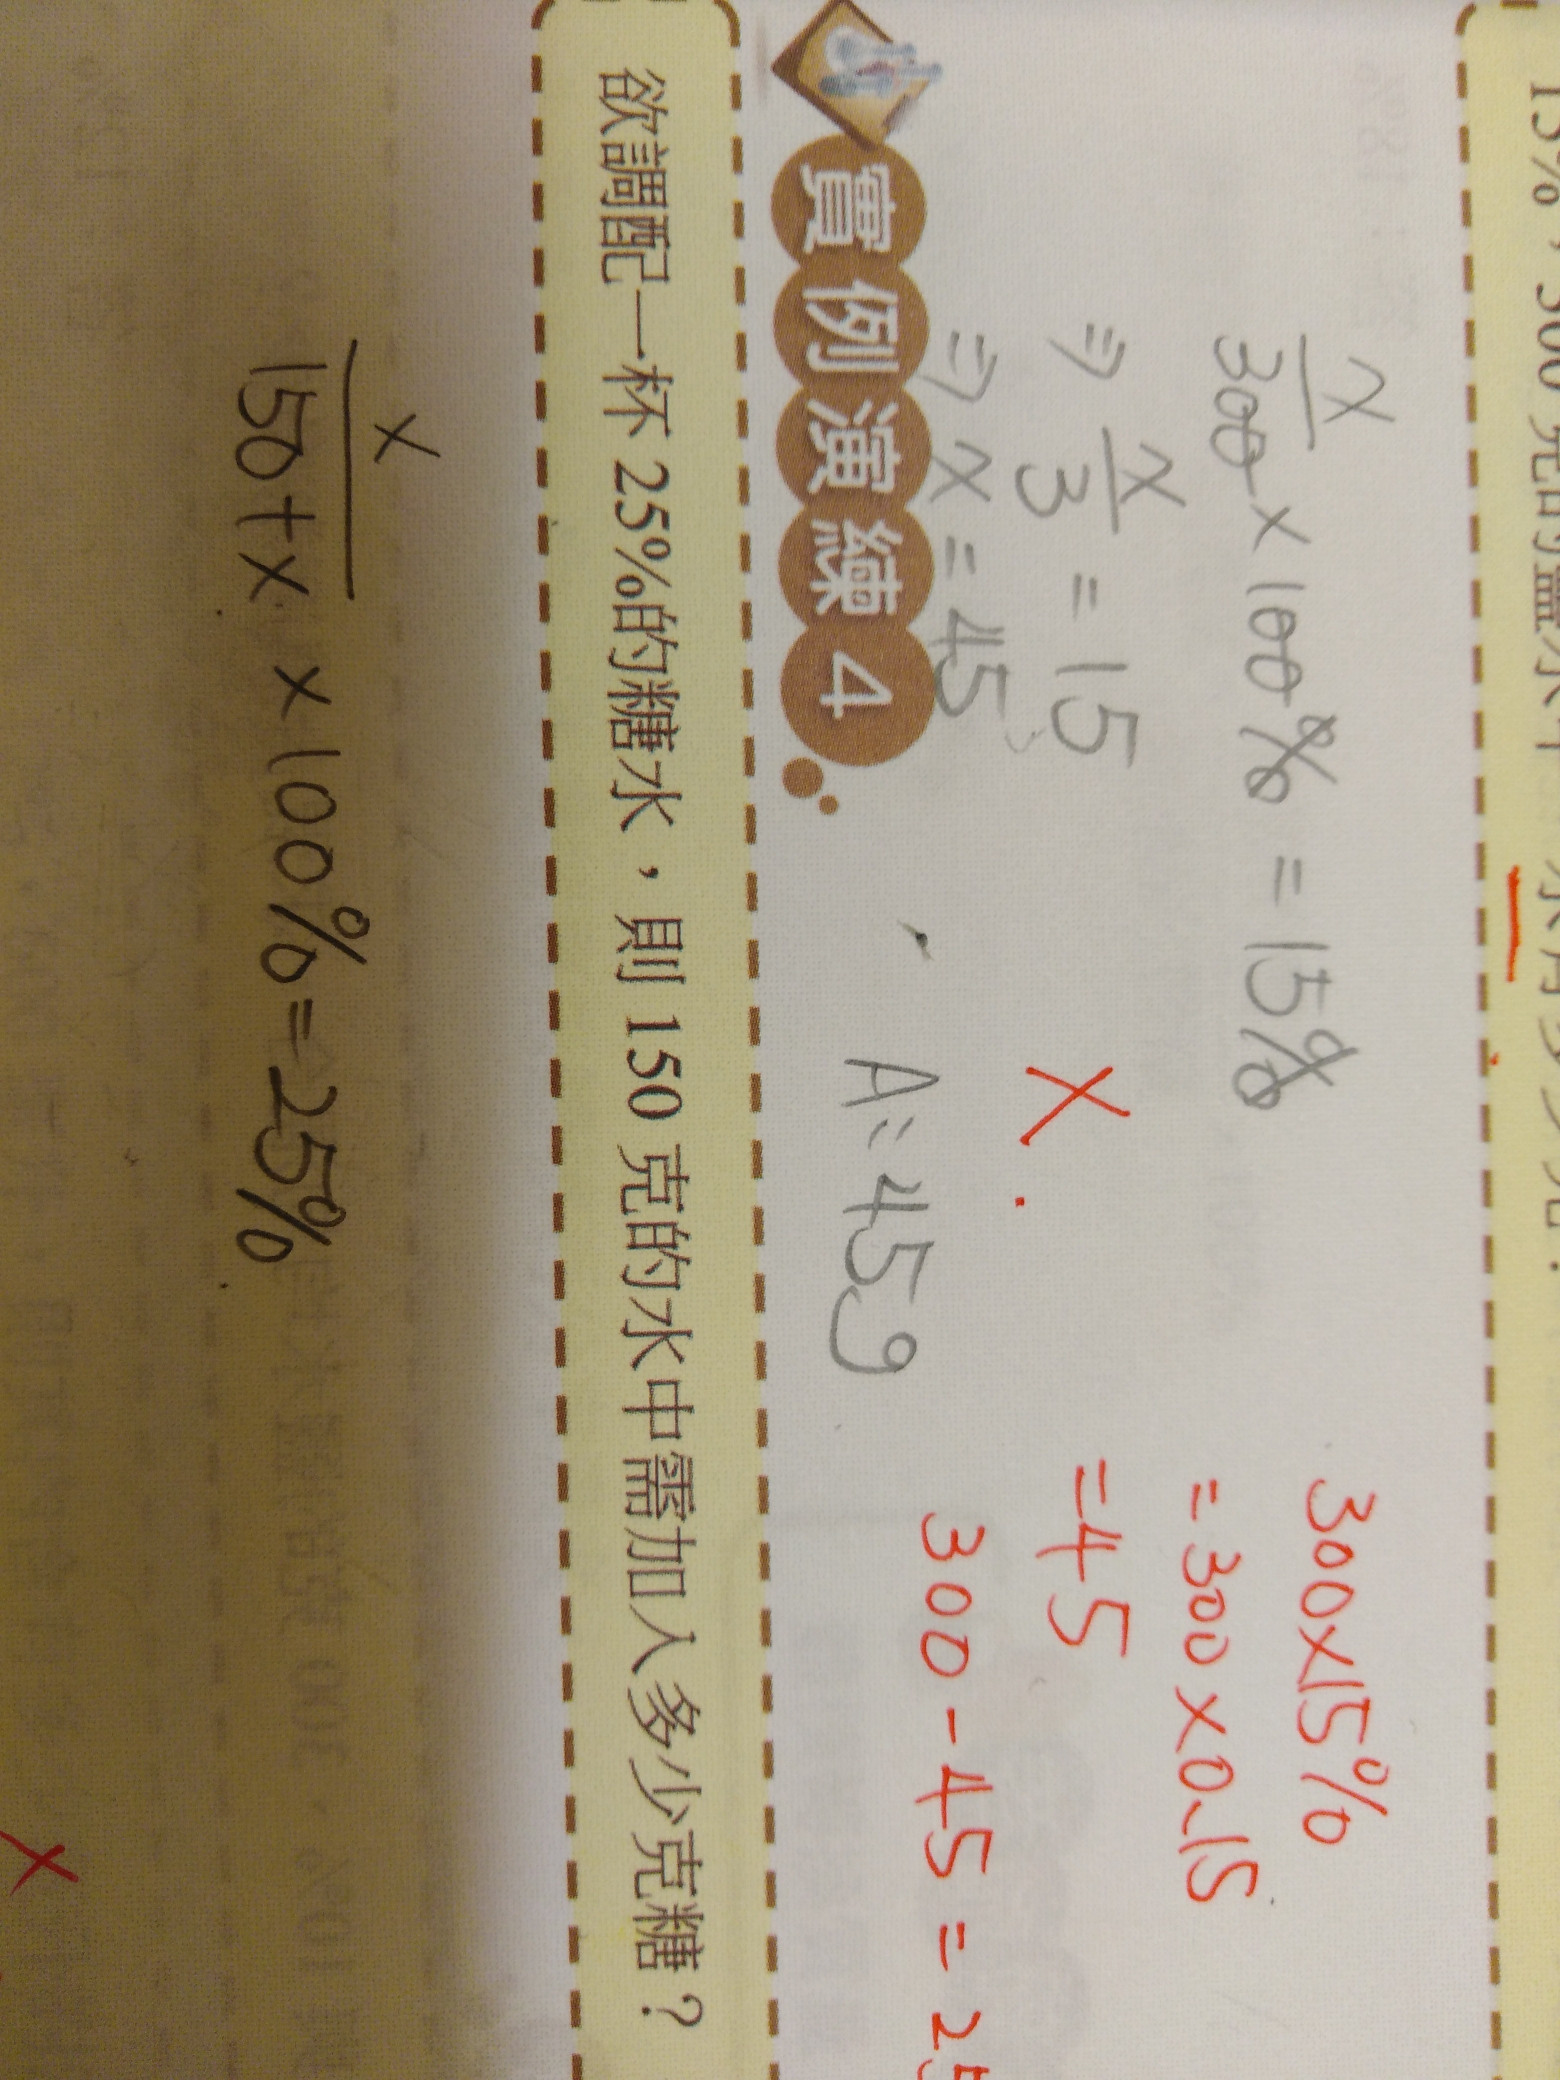 15%，300 克的鹽水中
x/300 × 100% = 15%
300×15%
⇒ x/3 = 15
= 300×0.15
X
= 45
⇒ x = 45
300 - 45 = 25
A: 45g
實例演練 4
欲調配一杯 25%的糖水，則 150 克的水中需加入多少克糖？
x/150+x × 100% = 25%
X